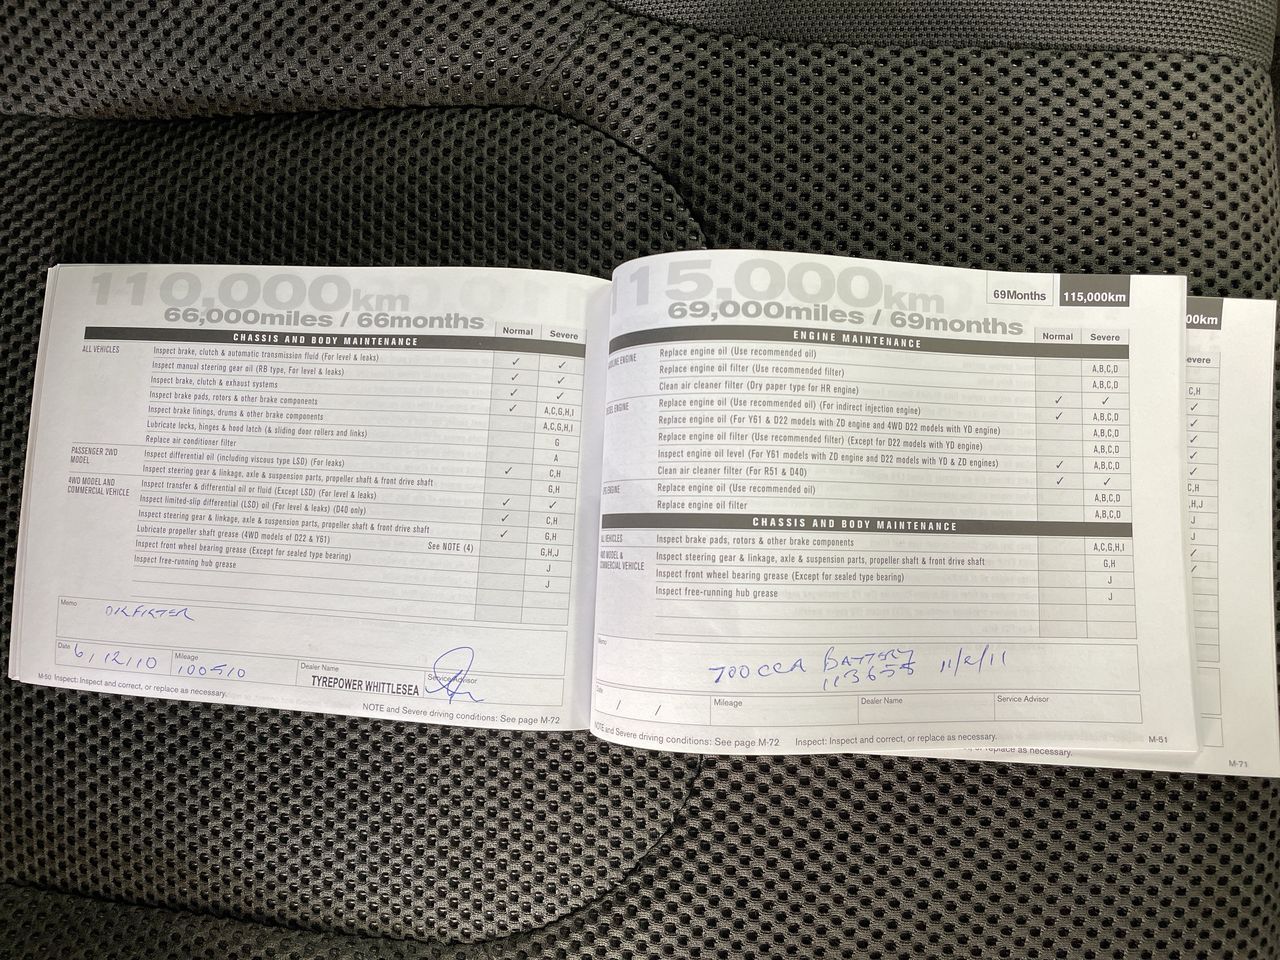 110,000km
66,000miles / 66months
Normal Severe
CHASSIS AND BODY MAINTENANCE
ALL VEHICLES
Inspect brake, clutch & automatic transmission fluid (For level & leaks) ✓ ✓
Inspect manual steering gear oil (RB type, For level & leaks) ✓ ✓
Inspect brake, clutch & exhaust systems ✓ ✓
Inspect brake pads, rotors & other brake components ✓ A,C,G,H,I
Inspect brake linings, drums & other brake components A,C,G,H,I
Lubricate locks, hinges & hood latch (& sliding door rollers and links) G
Replace air conditioner filter A
PASSENGER 2WD MODEL
Inspect differential oil (including viscous type LSD) (For leaks) ✓ C,H
Inspect steering gear & linkage, axle & suspension parts, propeller shaft & front drive shaft G,H
4WD MODEL AND COMMERCIAL VEHICLE
Inspect transfer & differential oil or fluid (Except LSD) (For level & leaks) ✓ ✓
Inspect limited-slip differential (LSD) oil (For level & leaks) (D40 only) ✓ C,H
Inspect steering gear & linkage, axle & suspension parts, propeller shaft & front drive shaft ✓ G,H
Lubricate propeller shaft grease (4WD models of D22 & Y61) See NOTE (4) G,H,J
Inspect front wheel bearing grease (Except for sealed type bearing) J
Inspect free-running hub grease J
Memo
OIL FILTER
Date 6/12/10 Mileage 100510 Dealer Name TYREPOWER WHITTLESEA Service Advisor
M-50 Inspect: Inspect and correct, or replace as necessary.
NOTE and Severe driving conditions: See page M-72
15,000km
69,000miles / 69months
69Months 115,000km
Normal Severe
ENGINE MAINTENANCE
ENGINE
Replace engine oil (Use recommended oil) A,B,C,D
Replace engine oil filter (Use recommended filter) A,B,C,D
Clean air cleaner filter (Dry paper type for HR engine) ✓ ✓
ENGINE
Replace engine oil (Use recommended oil) (For indirect injection engine) ✓ A,B,C,D
Replace engine oil (For Y61 & D22 models with ZD engine and 4WD D22 models with YD engine) A,B,C,D
Replace engine oil filter (Use recommended filter) (Except for D22 models with YD engine) A,B,C,D
Inspect engine oil level (For Y61 models with ZD engine and D22 models with YD & ZD engines) ✓ A,B,C,D
Clean air cleaner filter (For R51 & D40) ✓ ✓
ENGINE
Replace engine oil (Use recommended oil) A,B,C,D
Replace engine oil filter A,B,C,D
CHASSIS AND BODY MAINTENANCE
VEHICLES
Inspect brake pads, rotors & other brake components A,C,G,H,I
MODEL & COMMERCIAL VEHICLE
Inspect steering gear & linkage, axle & suspension parts, propeller shaft & front drive shaft G,H
Inspect front wheel bearing grease (Except for sealed type bearing) J
Inspect free-running hub grease J
Memo
700CCA BATTERY 11/2/11
113655
/ / Mileage Dealer Name Service Advisor
NOTE and Severe driving conditions: See page M-72 Inspect: Inspect and correct, or replace as necessary. M-51
00km
evere
C,H
✓
✓
✓
✓
✓
C,H
H,J
J
J
✓
✓
replace as necessary.
M-71